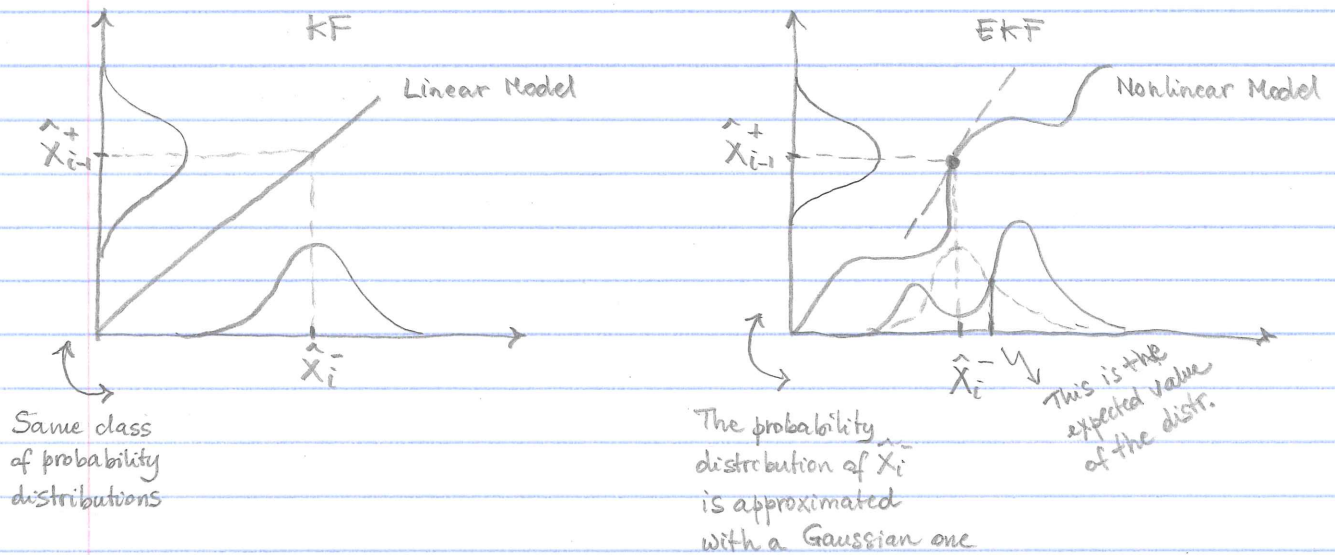 KF
Linear Model
X̂⁺ᵢ₋₁
X̂⁻ᵢ
Same class
of probability
distributions
EKF
Nonlinear Model
X̂⁺ᵢ₋₁
X̂⁻ᵢ
This is the
expected value
of the distr.
The probability
distribution of X̂⁻ᵢ
is approximated
with a Gaussian one